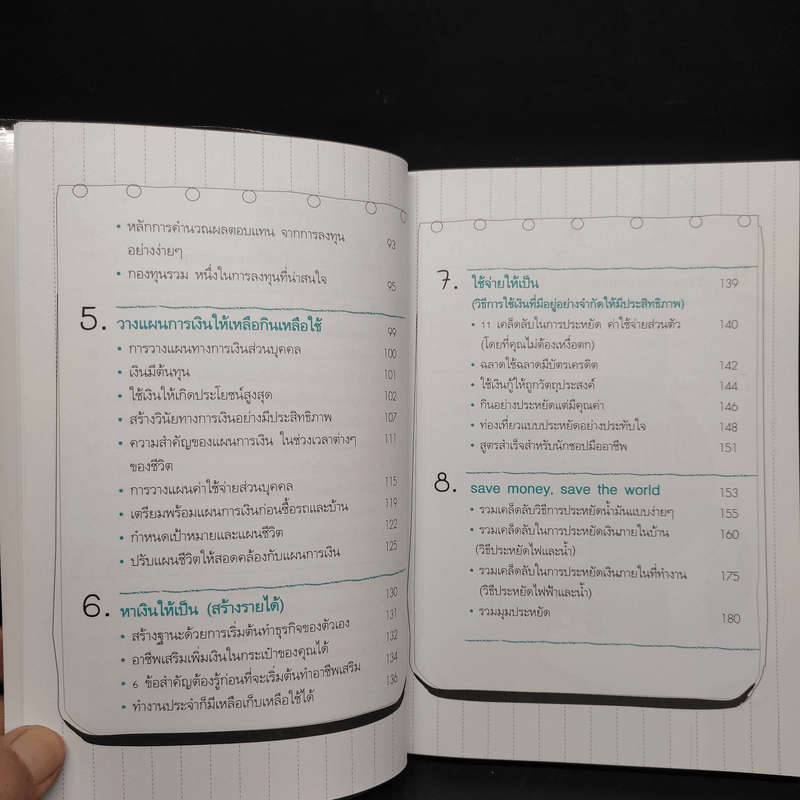 • หลักการคำนวณผลตอบแทน จากการลงทุน 93
อย่างง่ายๆ
• กองทุนรวม หนึ่งในการลงทุนที่น่าสนใจ 95
5. วางแผนการเงินให้เหลือกินเหลือใช้ 99
• การวางแผนทางการเงินส่วนบุคคล 100
• เงินมีต้นทุน 101
• ใช้เงินให้เกิดประโยชน์สูงสุด 102
• สร้างวินัยทางการเงินอย่างมีประสิทธิภาพ 107
• ความสำคัญของแผนการเงิน ในช่วงเวลาต่างๆ 111
ของชีวิต
• การวางแผนค่าใช้จ่ายส่วนบุคคล 115
• เตรียมพร้อมแผนการเงินก่อนซื้อรถและบ้าน 119
• กำหนดเป้าหมายและแผนชีวิต 122
• ปรับแผนชีวิตให้สอดคล้องกับแผนการเงิน 125
6. หาเงินให้เป็น (สร้างรายได้) 130
• สร้างฐานะด้วยการเริ่มต้นทำธุรกิจของตัวเอง 131
• อาชีพเสริมเพิ่มเงินในกระเป๋าของคุณได้ 132
• 6 ข้อสำคัญต้องรู้ก่อนที่จะเริ่มต้นทำอาชีพเสริม 134
• ทำงานประจำก็มีเหลือเก็บเหลือใช้ได้ 136
7. ใช้จ่ายให้เป็น 139
(วิธีการใช้เงินที่มีอยู่อย่างจำกัดให้มีประสิทธิภาพ)
• 11 เคล็ดลับในการประหยัด ค่าใช้จ่ายส่วนตัว 140
(โดยที่คุณไม่ต้องเหงื่อตก)
• ฉลาดใช้ฉลาดมีบัตรเครดิต 142
• ใช้เงินกู้ให้ถูกวัตถุประสงค์ 144
• กินอย่างประหยัดแต่มีคุณค่า 146
• ท่องเที่ยวแบบประหยัดอย่างประทับใจ 148
• สูตรสำเร็จสำหรับนักชอปมืออาชีพ 151
8. save money, save the world 153
• รวมเคล็ดลับวิธีการประหยัดน้ำมันแบบง่ายๆ 155
• รวมเคล็ดลับในการประหยัดเงินภายในบ้าน 160
(วิธีประหยัดไฟและน้ำ)
• รวมเคล็ดลับในการประหยัดเงินภายในที่ทำงาน 175
(วิธีประหยัดไฟฟ้าและน้ำ)
• รวมมุมประหยัด 180